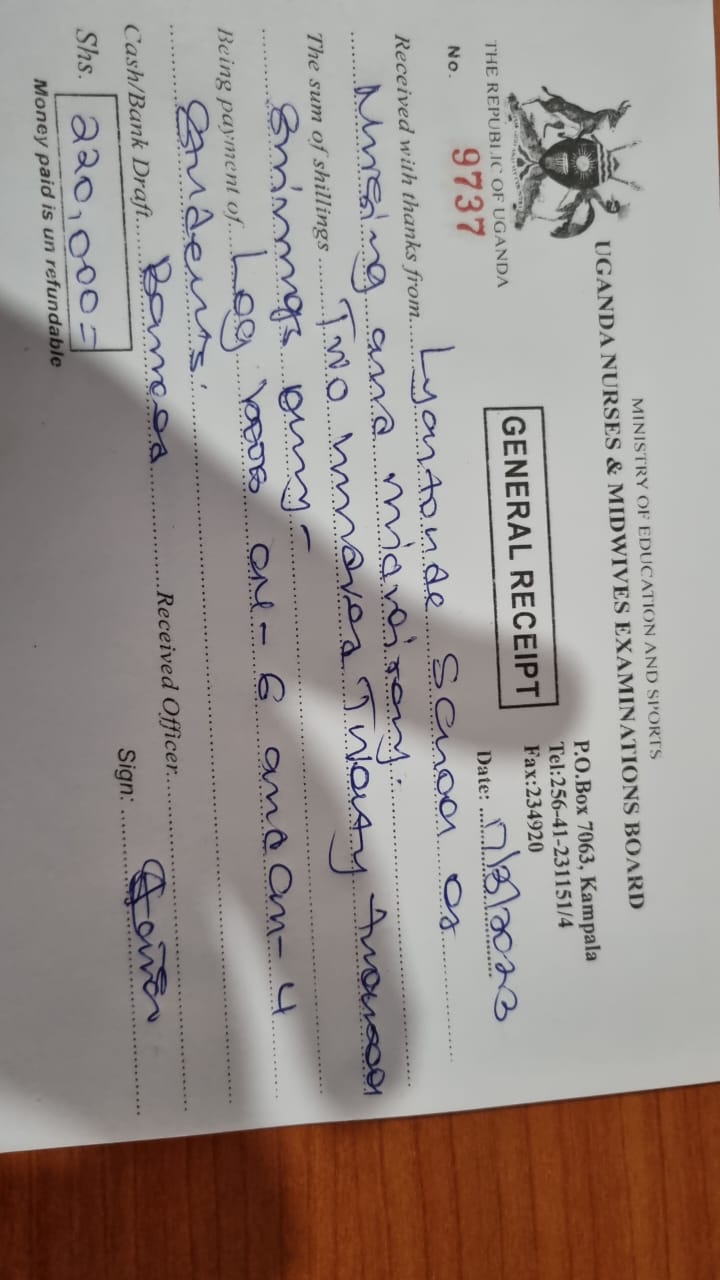 MINISTRY OF EDUCATION AND SPORTS
UGANDA NURSES & MIDWIVES EXAMINATIONS BOARD
P.O.Box 7063, Kampala
Tel:256-41-231151/4
Fax:234920
THE REPUBLIC OF UGANDA
GENERAL RECEIPT
No. 9737
Date: 2023
Received with thanks from Lyantonde School of
Nursing and midwifery.
The sum of shillings Two hundred Twenty thousand
Shillings only -
Being payment of Log books - 6 and - 4
Students.
Cash/Bank Draft Banked Received Officer
Sign:
Shs. 220,000=
Money paid is un refundable